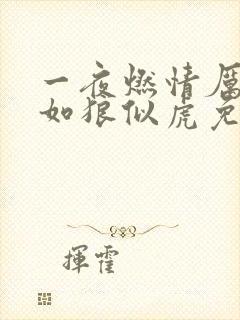 一夜燃情厲
如狼似虎免
揮霍